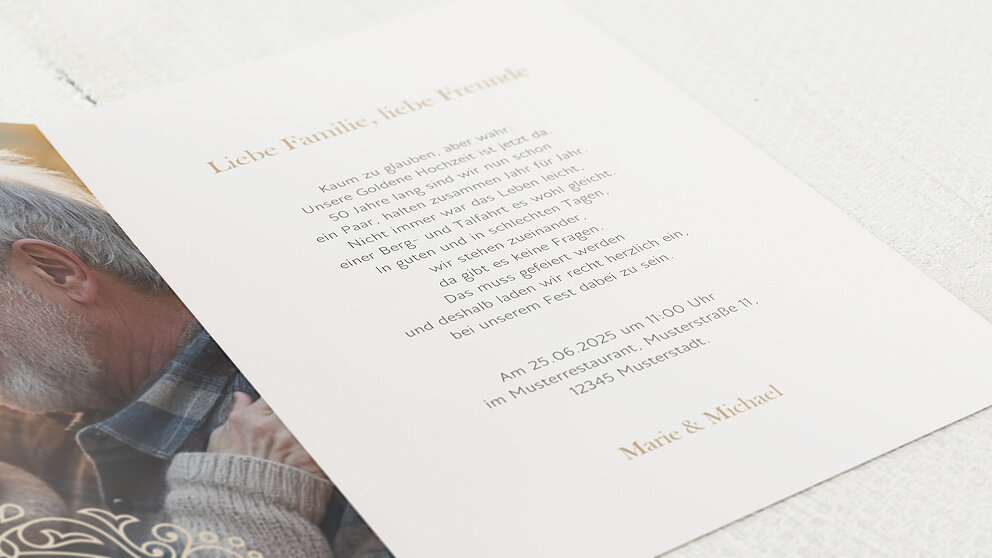 Liebe Familie, liebe Freunde
Kaum zu glauben, aber wahr:
Unsere Goldene Hochzeit ist jetzt da.
50 Jahre lang sind wir nun schon
ein Paar, halten zusammen Jahr für Jahr.
Nicht immer war das Leben leicht,
einer Berg- und Talfahrt es wohl gleicht.
In guten und in schlechten Tagen,
wir stehen zueinander,
da gibt es keine Fragen.
Das muss gefeiert werden
und deshalb laden wir recht herzlich ein,
bei unserem Fest dabei zu sein.
Am 25.06.2025 um 11:00 Uhr
im Musterrestaurant, Musterstraße 11,
12345 Musterstadt.
Marie & Michael